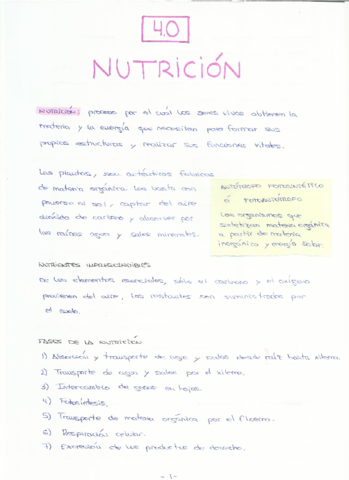 4.0
NUTRICIÓN
NUTRICIÓN: proceso por el cuál los seres vivos obtienen la
materia y la energía que necesitan para formar sus
propias estructuras y realizar sus funciones vitales.
Las plantas, son auténticas fábricas
de materia orgánica. Les basta con
ponerse al sol, captar del aire
dióxido de carbono y absorber por
las raíces agua y sales minerales.
AUTÓTROFO FOTOSINTÉTICO
Ó FOTOAUTÓTROFO
Los organismos que
sintetizan materia orgánica
a partir de materia
inorgánica y energía solar.
NUTRIENTES IMPRESCINDIBLES
De los elementos esenciales, sólo el carbono y el oxígeno
provienen del aire, los restantes son suministrados por
el suelo.
FASES DE LA NUTRICIÓN
1) Absorción y transporte de agua y sales desde raíz hasta xilema.
2) Transporte de agua y sales por el xilema.
3) Intercambio de gases en hojas.
4) Fotosíntesis.
5) Transporte de materia orgánica por el floema.
6) Respiración celular.
7) Excreción de los productos de desecho.
-1-